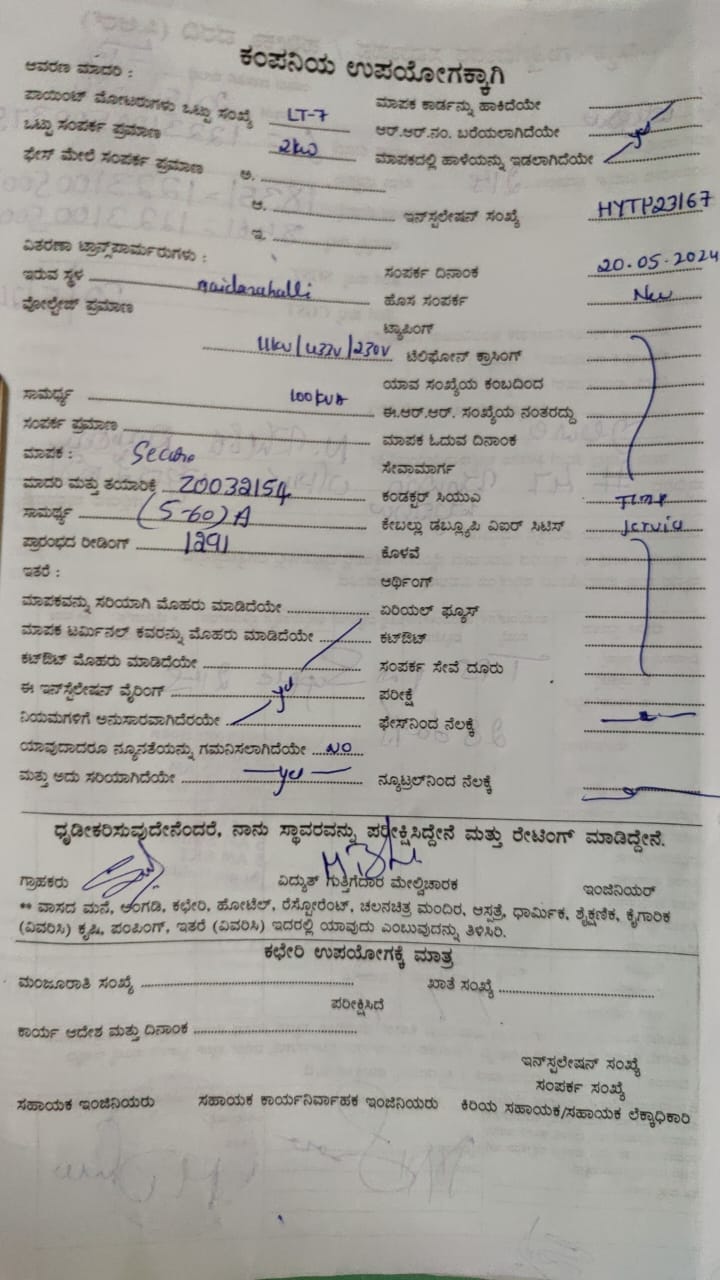 ಕಂಪನಿಯ ಉಪಯೋಗಕ್ಕಾಗಿ
ಆವರಣ ಮಾದರಿ :
ಪಾಯಿಂಟ್ ಮೋಟರುಗಳು ಒಟ್ಟು ಸಂಖ್ಯೆ LT-7 ಮಾಪಕ ಕಾರ್ಡನ್ನು ಹಾಕಿದೆಯೇ
ಒಟ್ಟು ಸಂಪರ್ಕ ಪ್ರಮಾಣ 2kw ಆರ್.ಆರ್.ನಂ. ಬರೆಯಲಾಗಿದೆಯೇ yes
ಫೇಸ್ ಮೇಲೆ ಸಂಪರ್ಕ ಪ್ರಮಾಣ ಅ. ಮಾಪಕದಲ್ಲಿ ಹಾಳೆಯನ್ನು ಇಡಲಾಗಿದೆಯೇ
ಆ. ಇನ್‌ಸ್ಟಲೇಷನ್ ಸಂಖ್ಯೆ HYTP23167
ಇ.
ವಿತರಣಾ ಟ್ರಾನ್ಸ್‌ಪಾರ್ಮರುಗಳು : ಸಂಪರ್ಕ ದಿನಾಂಕ 20.05.2024
ಇರುವ ಸ್ಥಳ ಹೊಸ ಸಂಪರ್ಕ New
ವೋಲ್ಟೇಜ್ ಪ್ರಮಾಣ ಟ್ಯಾಪಿಂಗ್
11kv/433V/230V ಟೆಲಿಫೋನ್ ಕ್ರಾಸಿಂಗ್
ಸಾಮರ್ಥ್ಯ 100kVA ಯಾವ ಸಂಖ್ಯೆಯ ಕಂಬದಿಂದ
ಸಂಪರ್ಕ ಪ್ರಮಾಣ ಈ.ಆರ್.ಆರ್. ಸಂಖ್ಯೆಯ ನಂತರದ್ದು
ಮಾಪಕ : Secure ಮಾಪಕ ಓದುವ ದಿನಾಂಕ
ಸೇವಾಮಾರ್ಗ
ಮಾದರಿ ಮತ್ತು ತಯಾರಿಕೆ 20032154 ಕಂಡಕ್ಟರ್ ಸಿಯುಎ Temp
ಸಾಮರ್ಥ್ಯ (5-60)A ಕೇಬಲ್ಲು ಡಬ್ಲ್ಯೂಪಿ ಎಐರ್ ಸಿಟಿಸ್ service
ಪ್ರಾರಂಭದ ರೀಡಿಂಗ್ 1291 ಕೊಳವೆ
ಇತರೆ : ಆರ್ಥಿಂಗ್
ಮಾಪಕವನ್ನು ಸರಿಯಾಗಿ ಮೊಹರು ಮಾಡಿದೆಯೇ ಏರಿಯಲ್ ಫ್ಯೂಸ್
ಮಾಪಕ ಟರ್ಮಿನಲ್ ಕವರನ್ನು ಮೊಹರು ಮಾಡಿದೆಯೇ ಕಟ್‌ಔಟ್
ಕಟ್‌ಔಟ್ ಮೊಹರು ಮಾಡಿದೆಯೇ ಸಂಪರ್ಕ ಸೇವೆ ದೂರು
ಈ ಇನ್‌ಸ್ಟೆಲೇಷನ್ ವೈರಿಂಗ್ yes ಪರೀಕ್ಷೆ
ನಿಯಮಗಳಿಗೆ ಅನುಸಾರವಾಗಿದೆರಯೇ ಫೇಸ್‌ನಿಂದ ನೆಲಕ್ಕೆ
ಯಾವುದಾದರೂ ನ್ಯೂನತೆಯನ್ನು ಗಮನಿಸಲಾಗಿದೆಯೇ NO
ಮತ್ತು ಅದು ಸರಿಯಾಗಿದೆಯೇ yes ನ್ಯೂಟ್ರಲ್‌ನಿಂದ ನೆಲಕ್ಕೆ
ಧೃಡೀಕರಿಸುವುದೇನೆಂದರೆ, ನಾನು ಸ್ಥಾವರವನ್ನು ಪರೀಕ್ಷಿಸಿದ್ದೇನೆ ಮತ್ತು ರೇಟಿಂಗ್ ಮಾಡಿದ್ದೇನೆ.
ಗ್ರಾಹಕರು ವಿದ್ಯುತ್ ಗುತ್ತಿಗೆದಾರ ಮೇಲ್ವಿಚಾರಕ ಇಂಜಿನಿಯರ್
** ವಾಸದ ಮನೆ, ಅಂಗಡಿ, ಕಛೇರಿ, ಹೋಟೆಲ್, ರೆಸ್ಟೋರೆಂಟ್, ಚಲನಚಿತ್ರ ಮಂದಿರ, ಆಸ್ಪತ್ರೆ, ಧಾರ್ಮಿಕ, ಶೈಕ್ಷಣಿಕ, ಕೈಗಾರಿಕ
(ವಿವರಿಸಿ) ಕೃಷಿ, ಪಂಪಿಂಗ್, ಇತರೆ (ವಿವರಿಸಿ) ಇದರಲ್ಲಿ ಯಾವುದು ಎಂಬುವುದನ್ನು ತಿಳಿಸಿರಿ.
ಕಛೇರಿ ಉಪಯೋಗಕ್ಕೆ ಮಾತ್ರ
ಮಂಜೂರಾತಿ ಸಂಖ್ಯೆ ಖಾತೆ ಸಂಖ್ಯೆ
ಪರೀಕ್ಷಿಸಿದೆ
ಕಾರ್ಯ ಆದೇಶ ಮತ್ತು ದಿನಾಂಕ
ಇನ್‌ಸ್ಟಲೇಷನ್ ಸಂಖ್ಯೆ
ಸಂಪರ್ಕ ಸಂಖ್ಯೆ
ಸಹಾಯಕ ಇಂಜಿನಿಯರು ಸಹಾಯಕ ಕಾರ್ಯನಿರ್ವಾಹಕ ಇಂಜಿನಿಯರು ಕಿರಿಯ ಸಹಾಯಕ/ಸಹಾಯಕ ಲೆಕ್ಕಾಧಿಕಾರಿ